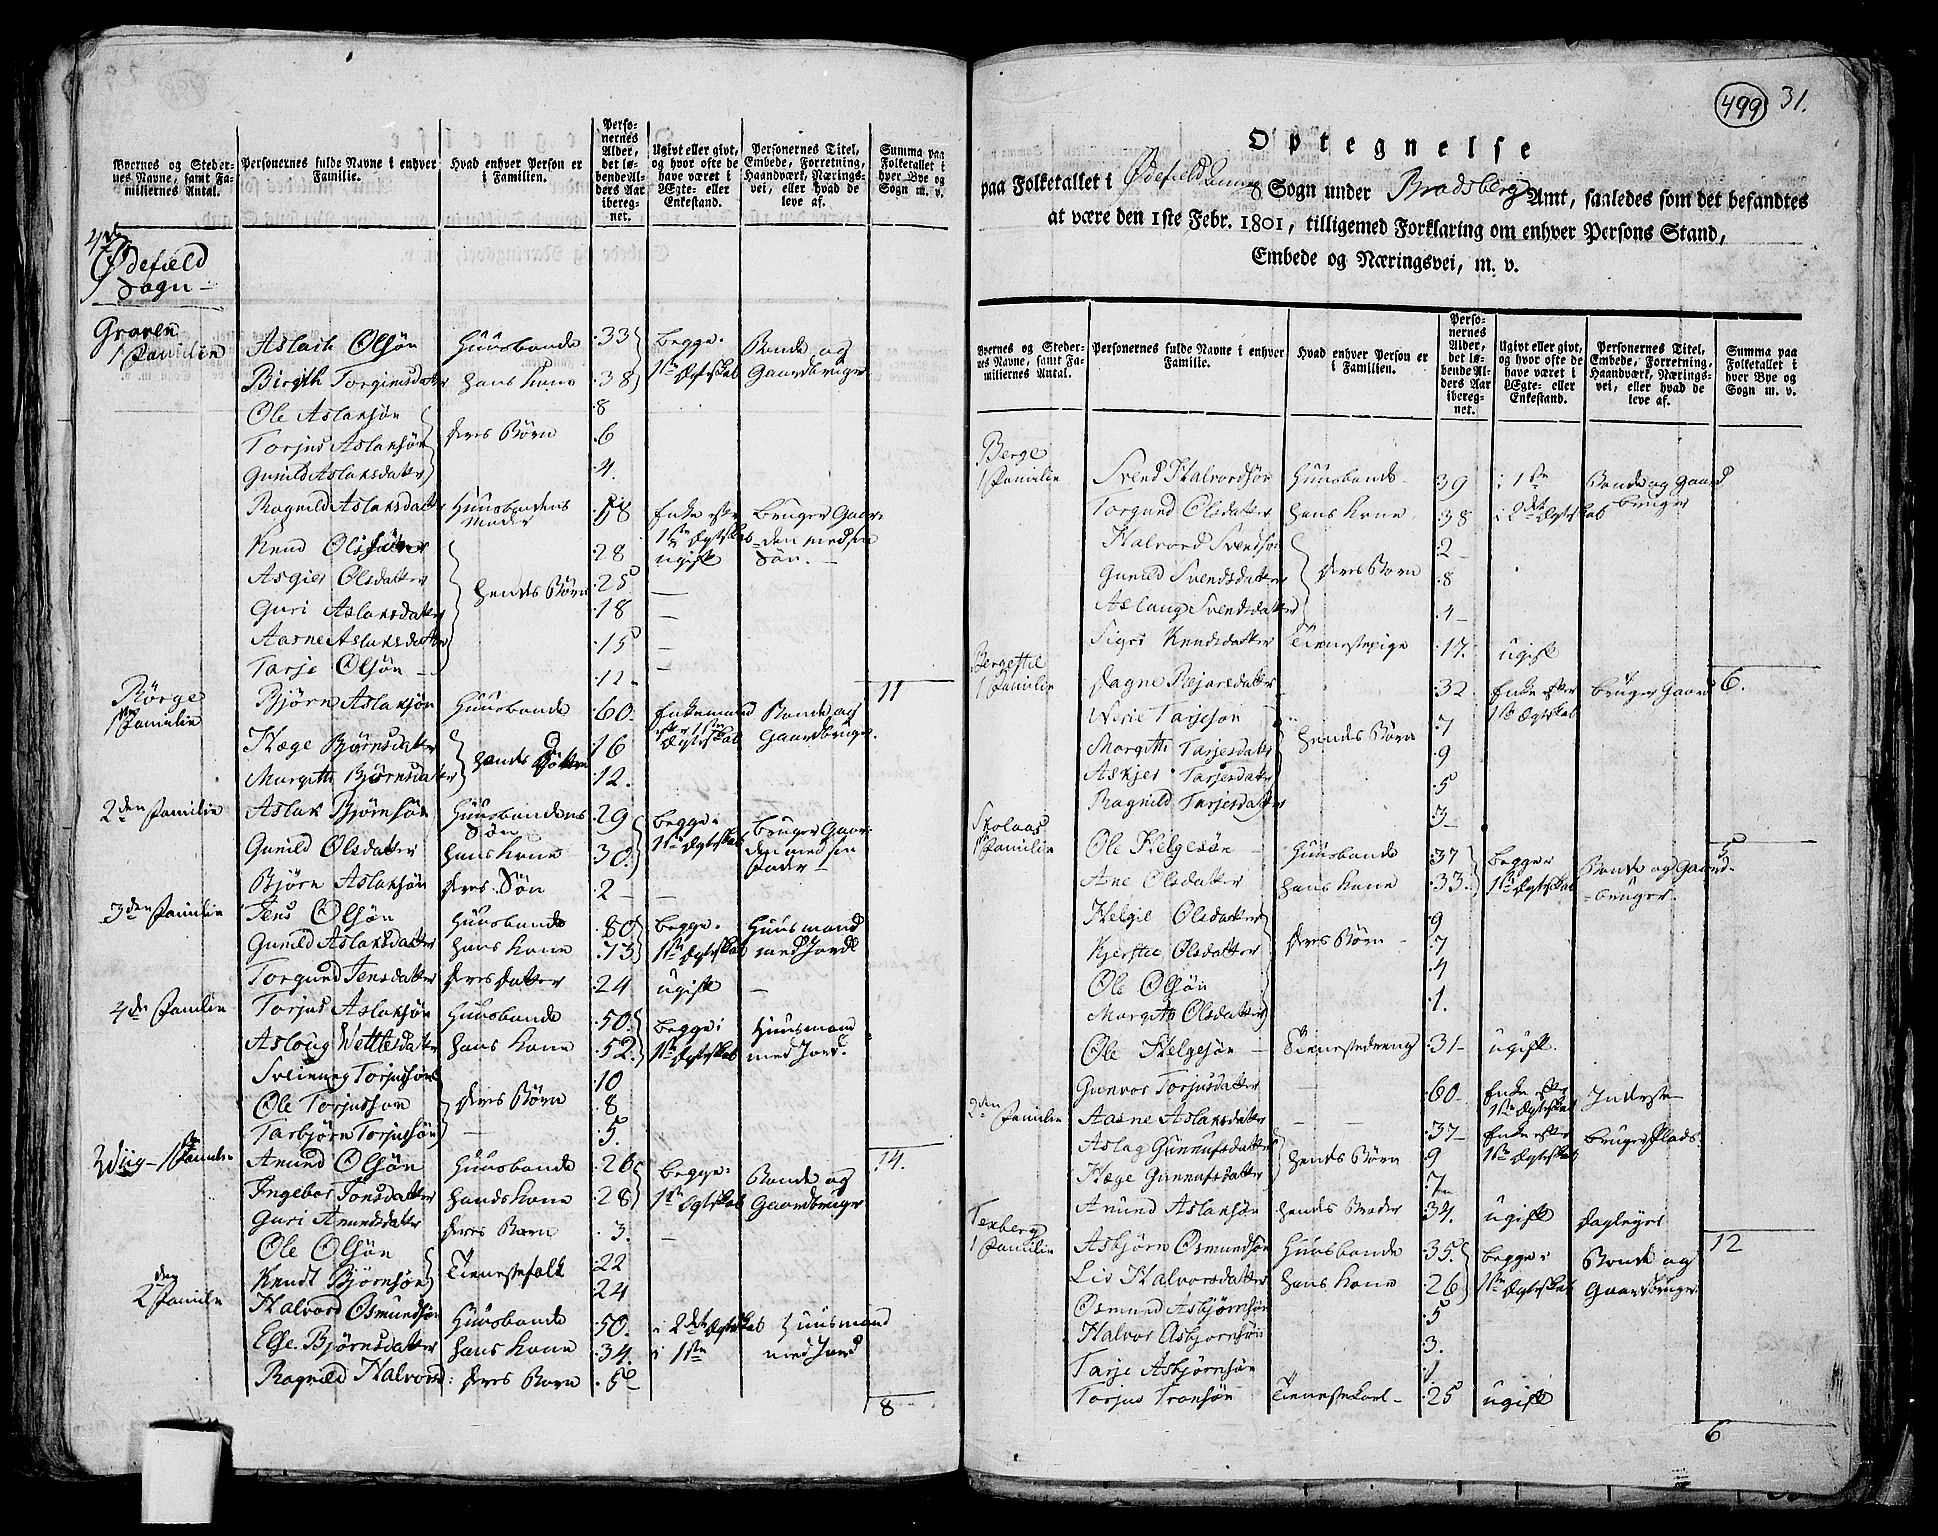 Byernes og Steder-
nes Navne, samt Fa-
miliernes Antal.
Personernes fulde Navne i enhver
Familie.
Hvad enhver Person er
i Familien.
Perso-
nernes
Alder,
det lø-
bende Al-
ders Aar
ibereg-
net.
Ugivt eller givt,
og hvor ofte de
have været i
Ægte- eller
Enkestand.
Personernes Titel,
Embede, Forretning,
Haandværk, Nærings-
vei, eller hvad de
leve af.
Summa paa
Folketallet i
hver Bye og
Sogn m. v.
4de
Ødefield
Sogn
Graven
1 Familie Aslach Olsøn Huusbonde 33 begge i 1ste Ægteskab Bonde og Gaardbruger
Birgith Torgimsdatter hans Kone 38
Ole Aslaksøn 8
Torjus Aslaksøn deres Børn 6
Gunild Aslaksdatter 4
Ragnild Aslaksdatter Huusbondens Moder 58 Enke efter 1ste Ægteskab bruger Gaarden med sin Søn
Knud Olsøn 28 ugift
Asgier Olsdatter hendes Børn 25
Guri Aslaksdatter 18
Aasne Aslaksdatter 15
Tarje Olsøn 12
11
Børge
1ste Familie Bjørn Aslaksøn Huusbonde 60 Enkemand efter 1ste Ægteskab Bonde og Gaardbruger
Hæge Bjørnsdatter hands Døttre 16
Margithe Bjørnsdatter 12
2den Familie Aslak Bjørnsøn Huusbondens Søn 29 begge i 1ste Ægteskab bruger Gaarden med sin Fader
Gunild Olsdatter hans Kone 30
Bjørn Aslaksøn deres Søn 2
3den Familie Jens Olsøn Huusbonde 80 begge i 1ste Ægteskab Huusmand med Jord
Gunild Aslaksdatter hans Kone 73
Torgund Jensdatter deres datter 24 ugift
4de Familie Torjus Aslaksøn Huusbonde 50 begge i 1ste Ægteskab Huusmand med Jord
Asloug Wettlesdatter hans Kone 52
Sveinung Torjussøn 10
Ole Torjussøn deres Børn 8
Tarbjørn Torjussøn 5
14
Wiig 1ste Familie Amund Olsøn Huusbonde 26 begge i 1ste Ægteskab Bonde og Gaardbruger
Ingebor Tonsdatter hands Kone 28
Guri Amundsdatter deres Barn 3
Ole Olsøn 22
Knudt Bjørnsøn Tienestefolk 24
2den Familie Halvord Osmundsøn Huusbonde 50 i 2det Ægteskab Huusmand med Jord
Else Bjørnsdatter hans Kone 34 i 1ste
Ragnild Halvorsd: deres Barn 5
8
499 31.
Optegnelse
paa Folketallet i Ødefield Sogn under Bradsberg Amt, saaledes som det befandtes
at være den 1ste Febr. 1801, tilligemed Forklaring om enhver Persons Stand,
Embede og Næringsvei, m. v.
Byernes og Steder-
nes Navne, samt Fa-
miliernes Antal.
Personernes fulde Navne i enhver
Familie.
Hvad enhver Person er
i Familien.
Perso-
nernes
Alder,
det lø-
bende Al-
ders Aar
ibereg-
net.
Ugivt eller givt,
og hvor ofte de
have været i
Ægte- eller
Enkestand.
Personernes Titel,
Embede, Forretning,
Haandværk, Nærings-
vei, eller hvad de
leve af.
Summa paa
Folketallet i
hver Bye og
Sogn m. v.
Berge
1 Familie Svend Halvordsøn Huusbonde 39 i 1ste Bonde og Gaardbruger
Torgund Olsdatter hans Kone 38 i 2det Ægteskab
Halvord Svendsøn 2
Gunild Svendsdatter deres Børn 8
Aslaug Svendsdatter 4
Sigri Knudsdatter Tienestepige 17 ugift
6.
Bergestil
1 Familie Dagne Rejarsdatter 32 Enke efter 1ste Ægteskab bruger Gaard
Nerie Tarjesøn 7
Margithe Tarjesdatter hendes Børn 9
Askjer Tarjesdatter 5
Ragnild Tarjesdatter 3
5
Skolaas
1 Familie Ole Helgesøn Huusbonde 37 begge i 1ste Ægteskab Bonde og Gaardbruger
Ane Olsdatter hans Kone 33
Helgie Olsdatter 9
Kjerstie Olsdatter deres Børn 7
Ole Olsøn 4
Margithe Olsdatter 1
Ole Helgesøn Tienestedreng 31 ugift
Gunvor Torjusdatter 60 Enke efter 1ste Ægteskab Inderste
2den Familie Aasne Aslaksdatter 37 Enke efter 1ste Ægteskab bruger Plads
Aslag Gunnufsdatter hendes Børn 9
Hæge Gunnufsdatter 7
Amund Aslaksøn hendes Broder 34 ugift Dagleyer
12
Texberg
1 Familie Asbjørn Osmundsøn Huusbonde 35 begge i 1ste Ægteskab Bonde og Gaardbruger
Liv Halvorsdatter hans Kone 26
Osmund Asbjørnsøn 5
Halvor Asbjørnsøn 3
Tarje Asbjørnsøn 1
Torjus Tronsøn Tienestekarl 25 ugift
6